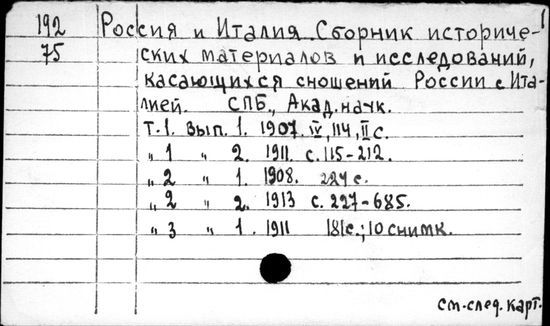 192 Россия и Италия. Сборник историче-
75 ских материалов и исследований,
касающихся сношений России с Ита-
лией. СПБ., Акад. наук.
Т.1. Вып. 1. 1907. IV, 114, II с.
„ 1 „ 2. 1911. с. 115-212.
„ 2 „ 1. 1908. 224 с.
„ 2 „ 2. 1913 с. 227-685.
„ 3 „ 1. 1911 181с.; 10 снимк.
см. след. карт.